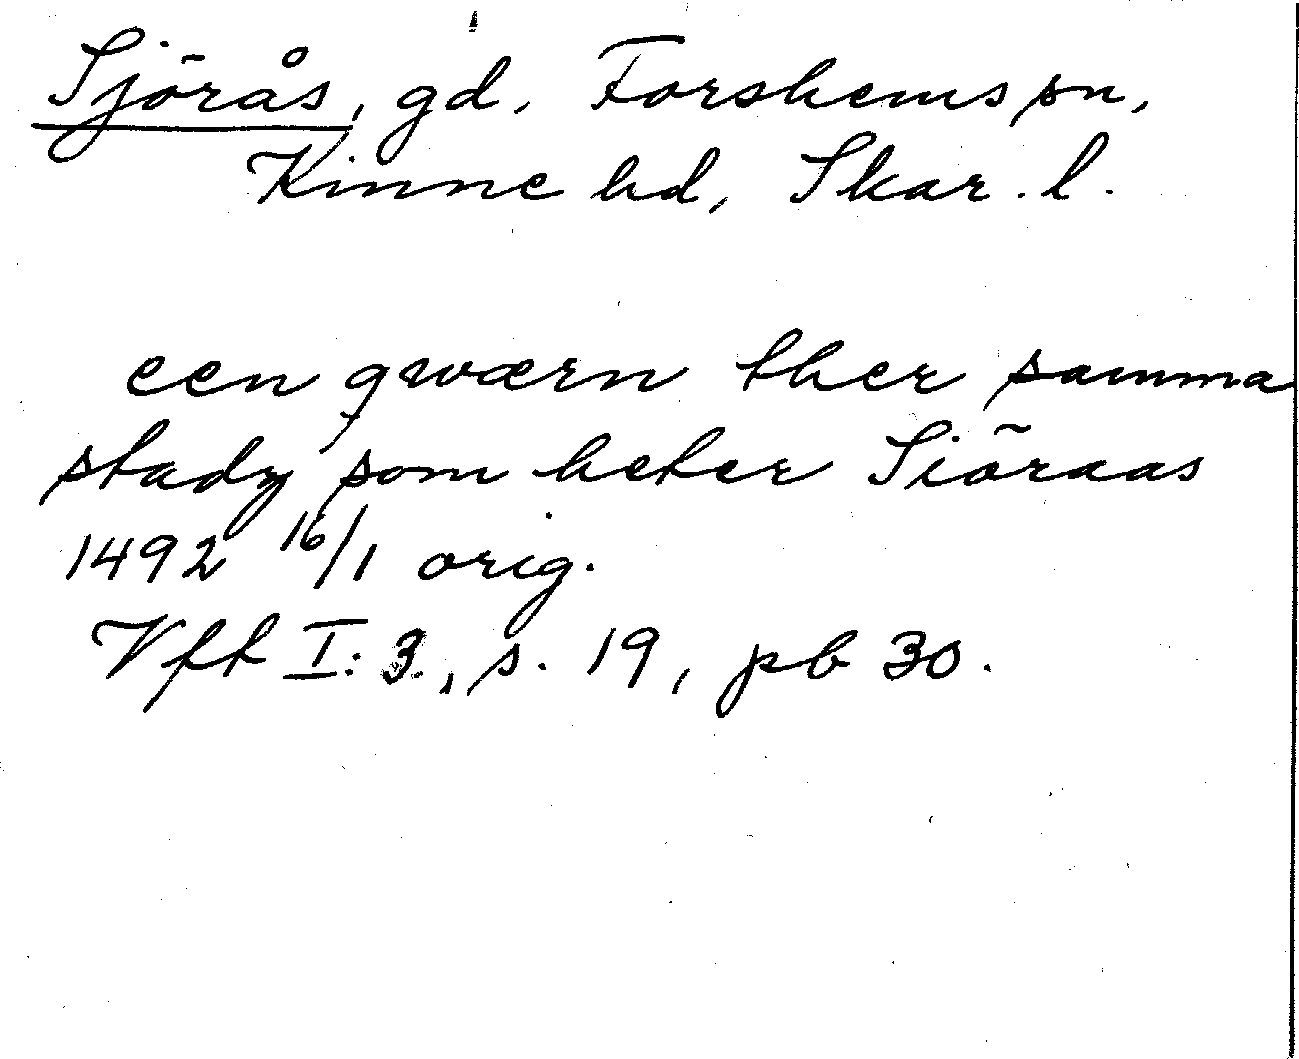 Sjörås, gd, Forshems sn,
Kinne hd, Skar. l.
een qwærn ther samma
stadz som heter Siöraas
1492 16/1 orig.
Vft I:3, s. 19, pb 30.